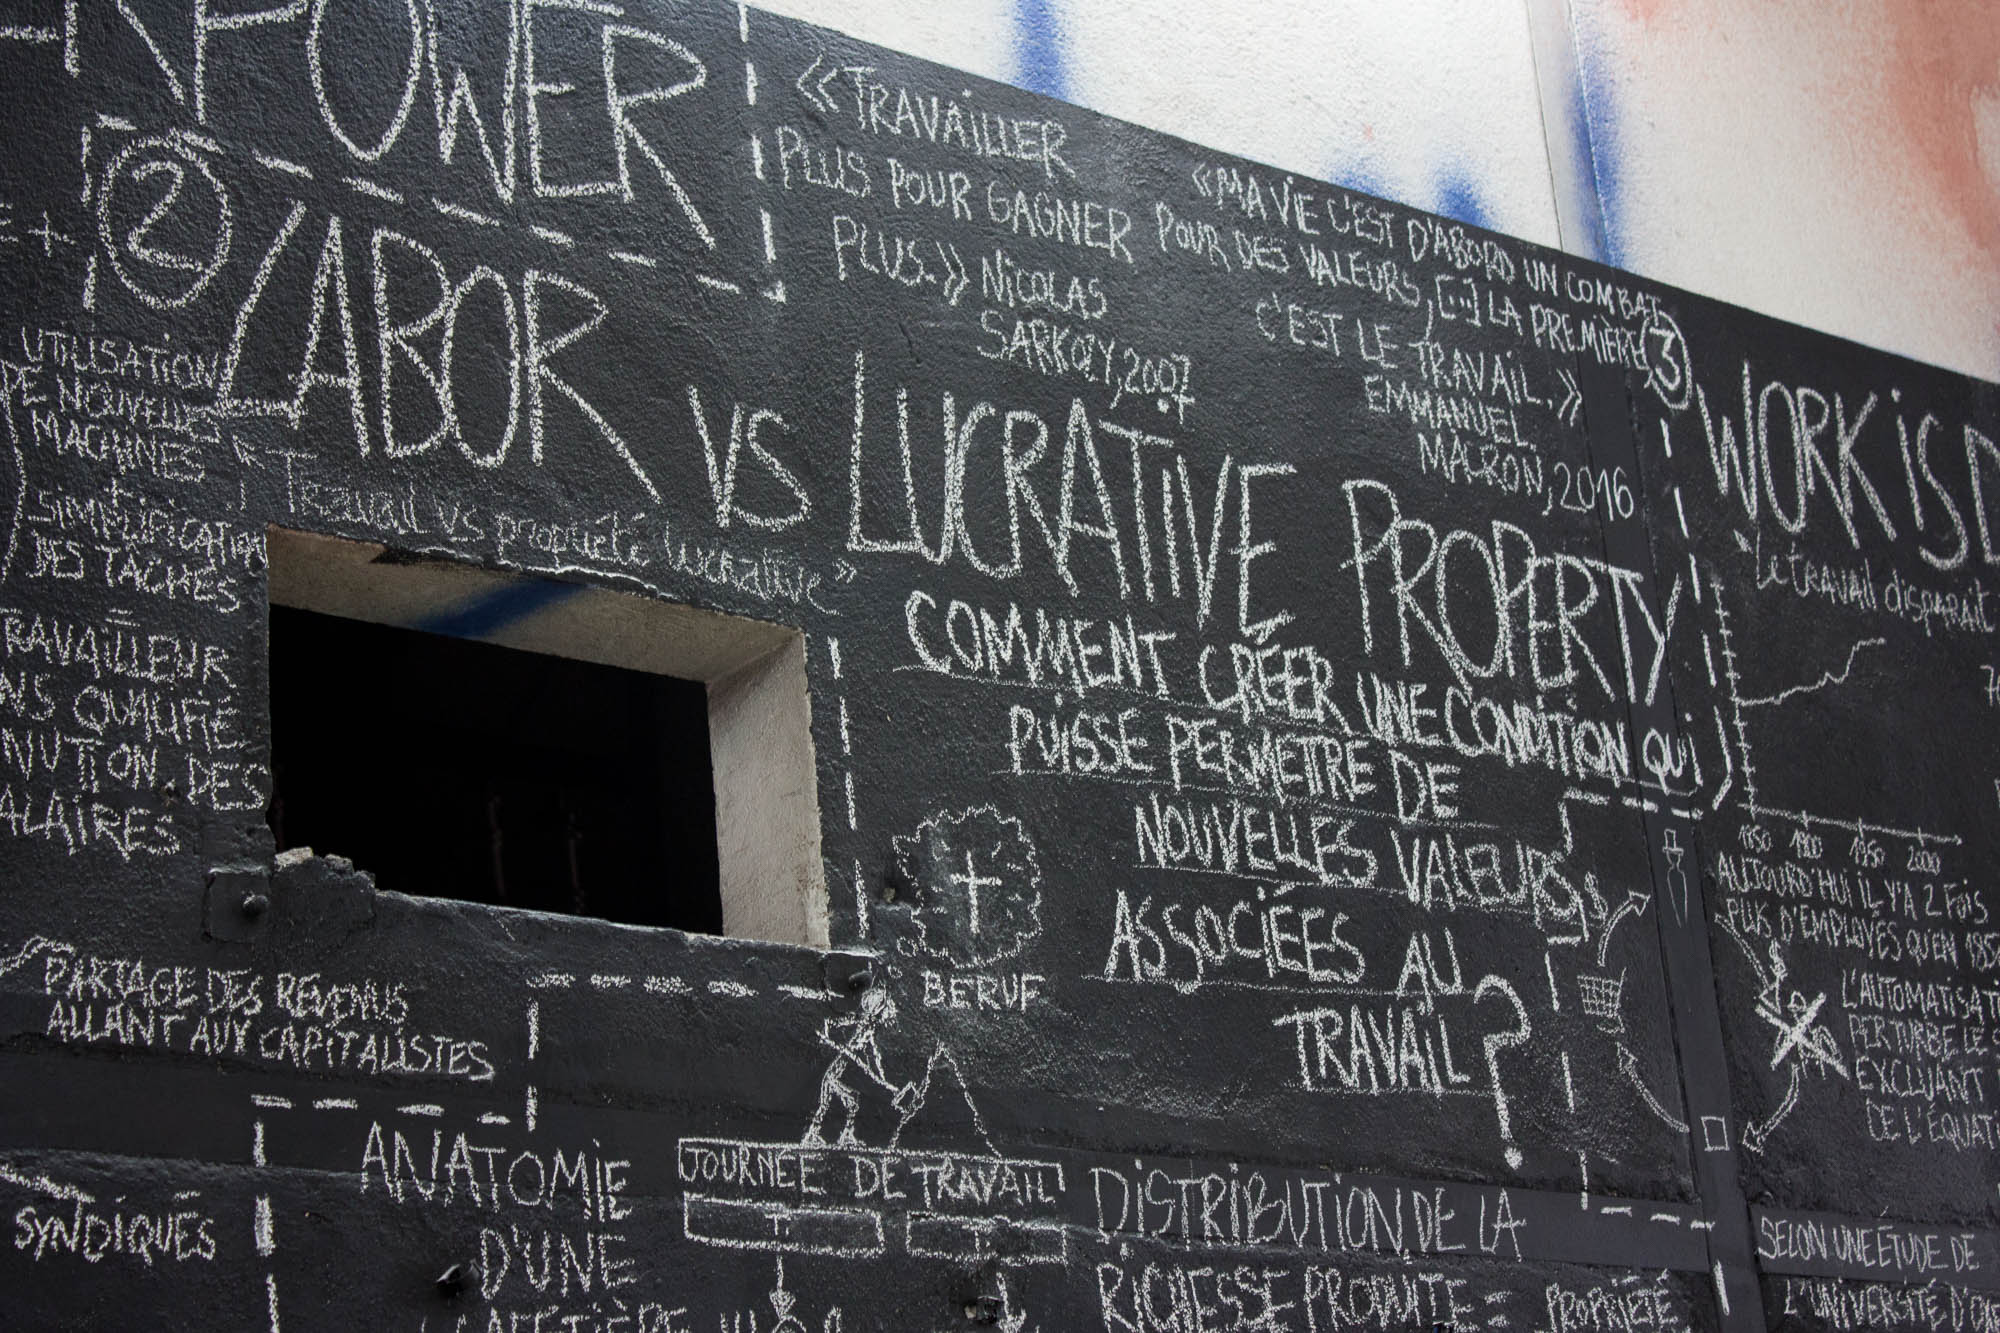 POWER
2
LABOR VS LUCRATIVE PROPERTY
"Travail vs propriété lucrative"
« TRAVAILLER
PLUS POUR GAGNER
PLUS. » NICOLAS
SARKOZY, 2007
« MA VIE C'EST D'ABORD UN COMBAT
POUR DES VALEURS, [...] LA PREMIÈRE,
C'EST LE TRAVAIL. »
EMMANUEL
MACRON, 2016
3
WORK IS D
"Le travail disparaît
E +
UTILISATION
DE NOUVELLES
MACHINES
+
SIMPLIFICATION
DES TÂCHES
=
RAVAILLEUR
NS QUALIFIÉ
NUTION DES
ALAIRES
COMMENT CRÉER UNE CONDITION QUI
PUISSE PERMETTRE DE
NOUVELLES VALEURS
ASSOCIÉES AU
TRAVAIL ?
BERUF
1850 1900 1950 2000
AUJOURD'HUI IL Y'A 2 FOIS
PLUS D'EMPLOYÉS QU'EN 185
L'AUTOMATISAT
PERTURBE LE
EXCLUANT
DE L'ÉQUAT
$
PARTAGE DES REVENUS
ALLANT AUX CAPITALISTES
SYNDIQUÉS
ANATOMIE
D'UNE
CAFETIÈRE
JOURNÉE DE TRAVAIL
T T
DISTRIBUTION DE LA
RICHESSE PRODUITE = PROPRIÉTÉ
SELON UNE ÉTUDE DE
L'UNIVERSITÉ D'OX